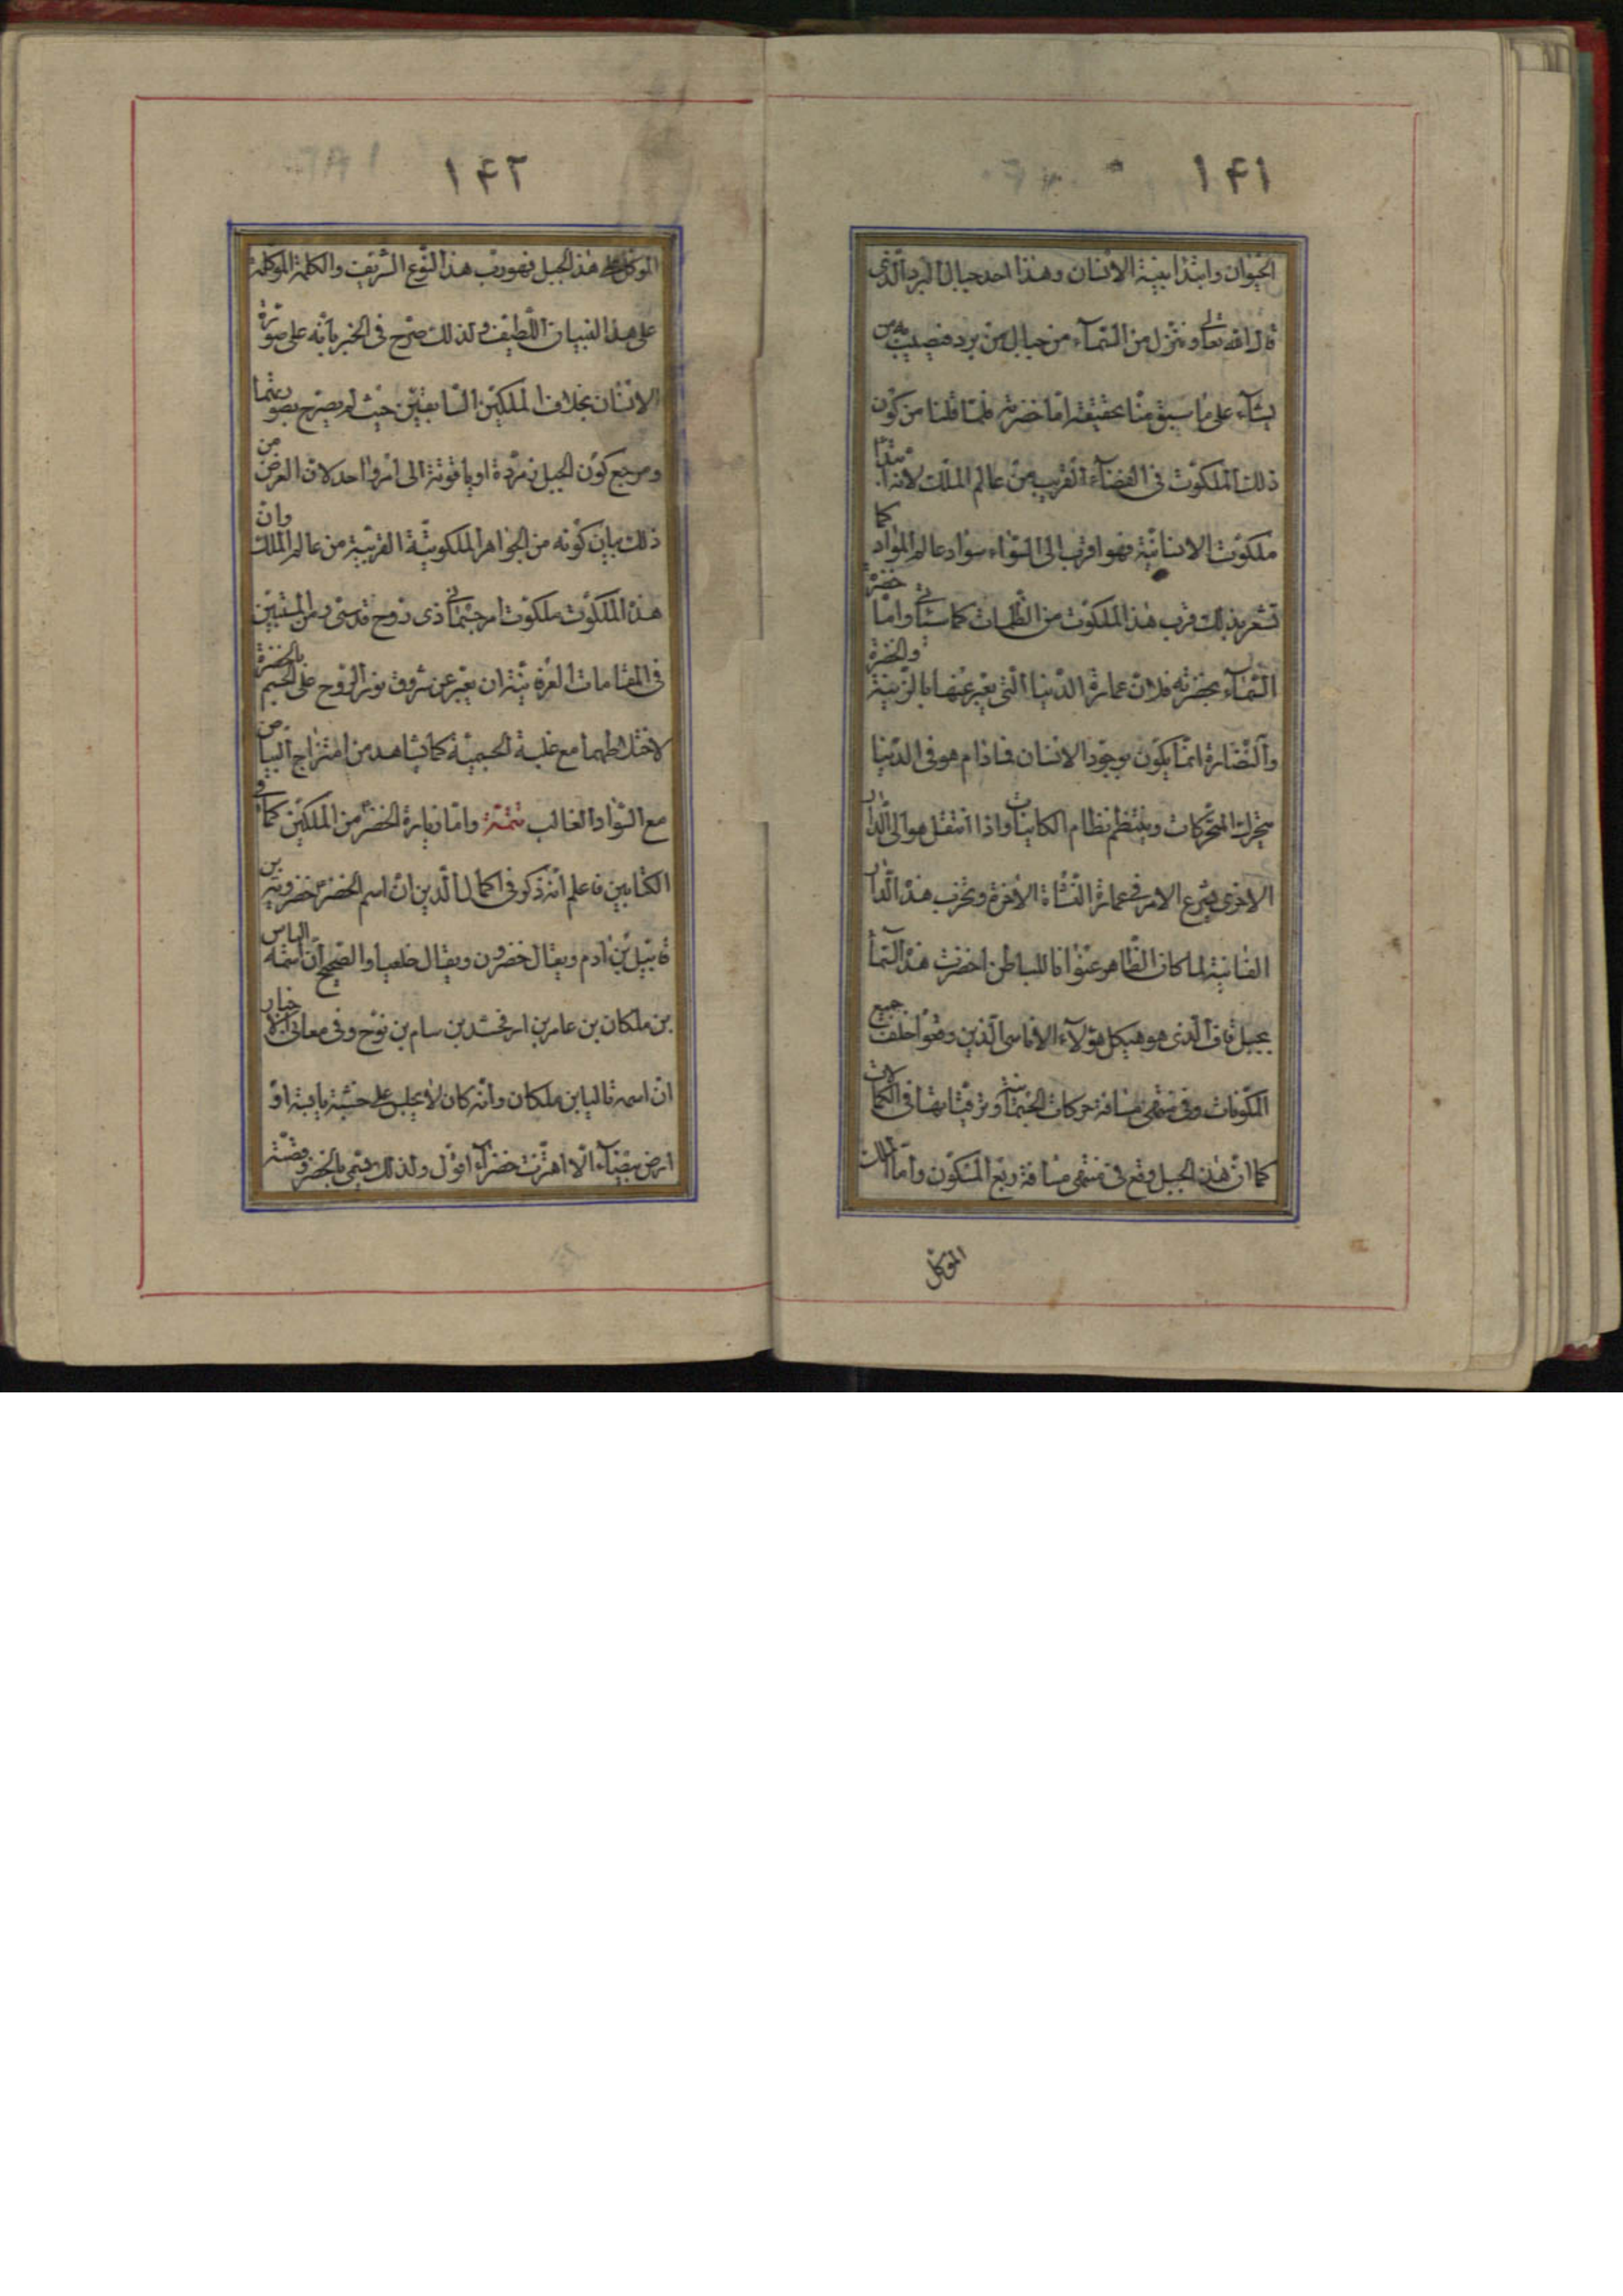 ۱۴۱
الحيوان وابتدا بقية الانسان وهذا احد جبال البرد الّذى
قال الله تعالى وينزل من السّمآء من جبال من برد فيصيب به من
يشآء على ما سبق منّا تحقيقه امّا خضرته فلما قلنا من كون
ذلك الملكوت فى الفضآء القريب من عالم الملك لانه مبدأ
ملكوت الانسانيّة فهو اقرب الى السّواد سواد عالم الموادّ كما
تشعر بذلك قرب هذا الملكوت من الظّلمات كما سيأتى وامّا خضرة
السّمآء بخضرته فلانّ عمارة الدّنيا الّتى يعبّر عنها بالزّينة والخضرة
والنّضارة انّما يكون بوجود الانسان فمادام هو فى الدّنيا
يتحرك المتحرّكات وينتظم نظام الكاينات واذا انتقل هو الى الدّار
الاخرى يسرع الامر فى عمارة النّشاة الاخرة وتخرب هذه الدّار
الفانية لما كان الظّاهر عنوانا للباطن اخضرت هذه السّمآ
بجبل قاف الّذى هو هيكل هؤلآء الاناسى الّذين وقعوا خلف جميع
المكوّنات وفى منتهى مسافة حركات الجسمانية وترقّياتها فى الكمالات
كما انّ هذا الجبل وقع فى منتهى مسافة ربع المسكون وامّا الملك
الموكّل
۱۴۲
الموكّل على هذا الجبل فهو ربّ هذا النّوع الشّريف والكلمة الموكّلة
على هذا البنيان اللّطيف ولذلك صرّح فى الخبر بانّه على صورة
الانسان بخلاف الملكين السّابقين حيث لم يصرّح بصورتهما
ومرجع كون الجبل زمرّدة او ياقوتة الى امر واحد لانّ الغرض من
ذلك بيان كونه من الجواهر الملكوتيّة القريبة من عالم الملك وانّ
هذا الملكوت ملكوت امر جسمانى ذى روح قدسىّ ومن المستبين
فى المقامات العرفانيّة ان يعبّر عن شروق نور الرّوح على الجسم بالخضرة
لاختلاطهما مع غلبة الجسميّة كما يشاهد من امتزاج البياض
مع السّواد الغالب تتمّة وامّا زيارة الخضر من الملكين كما فى
الكتابين فاعلم انّه ذكر فى اكمال الدّين انّ اسم الخضر خضرويه بن
قابيل بن ادم ويقال خضرون ويقال خلعيا والصّحيح انّ اسمه الياس
بن ملكان بن عامر بن ارفخشد بن سام بن نوح وفى معانى الاخبار
انّ اسمه تاليا بن ملكان وانّه كان لا يجلس على خشبة يابسة او
ارض بيضآء الّا اهتزّت خضرآء اقول ولذلك سمّى بالخضر وقصّته